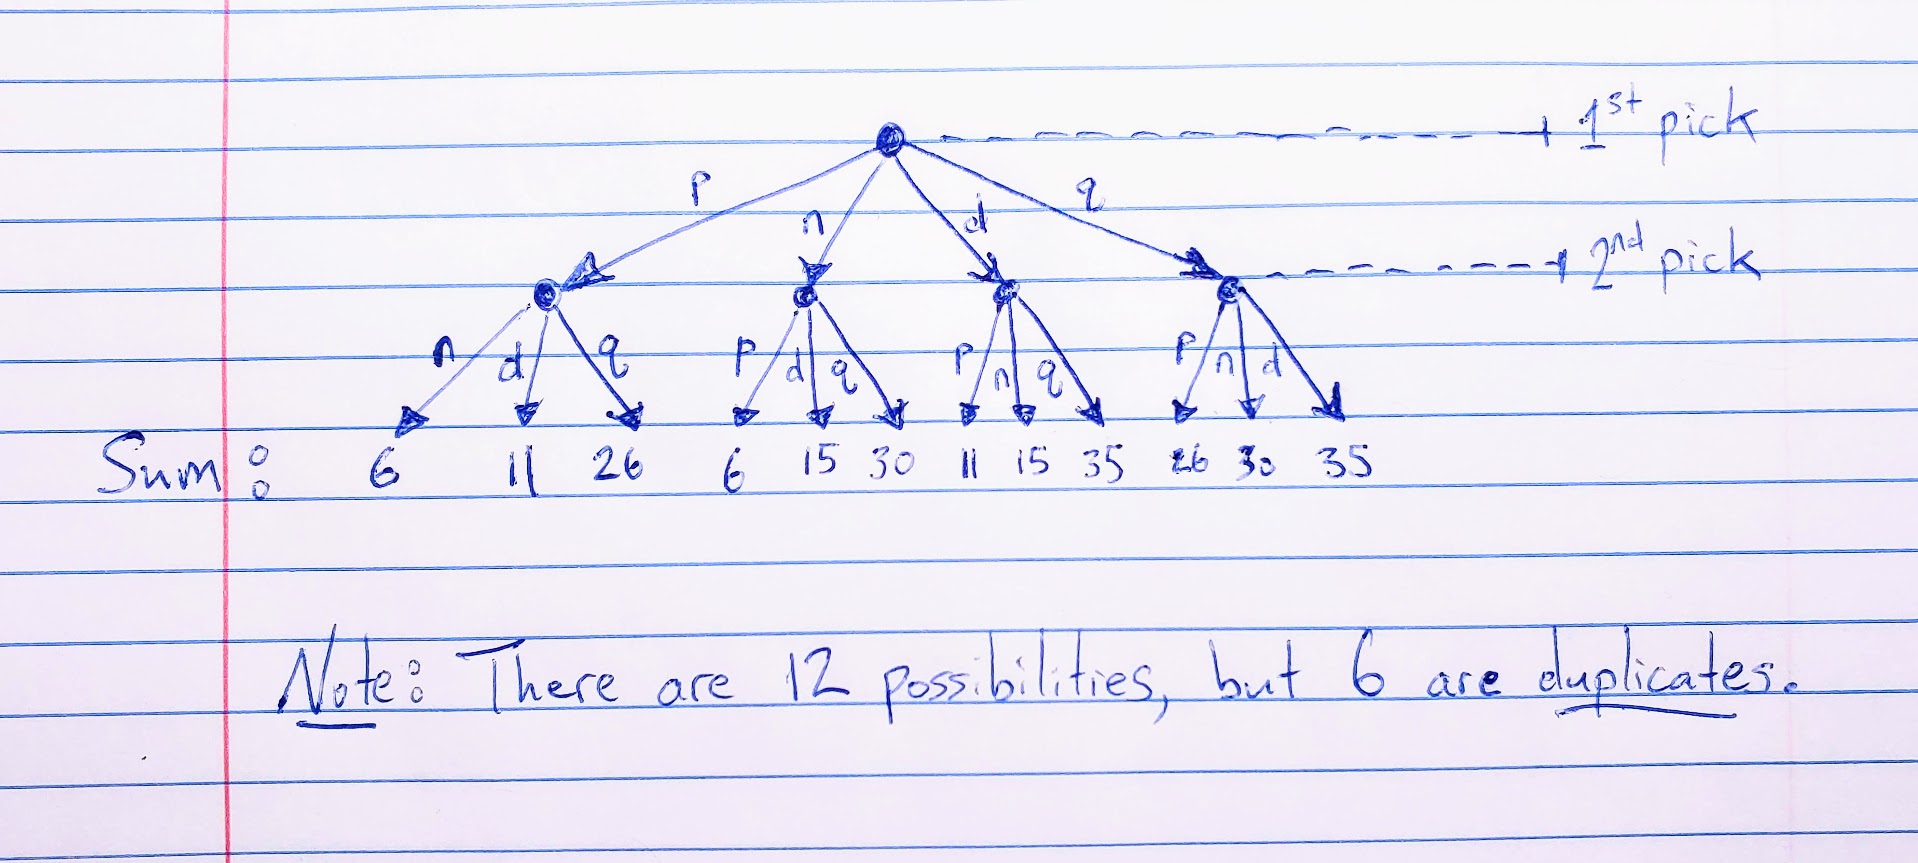 1st pick
p n d q
2nd pick
n d q p d q p n q p n d
Sum: 6 11 26 6 15 30 11 15 35 26 30 35
Note: There are 12 possibilities, but 6 are duplicates.